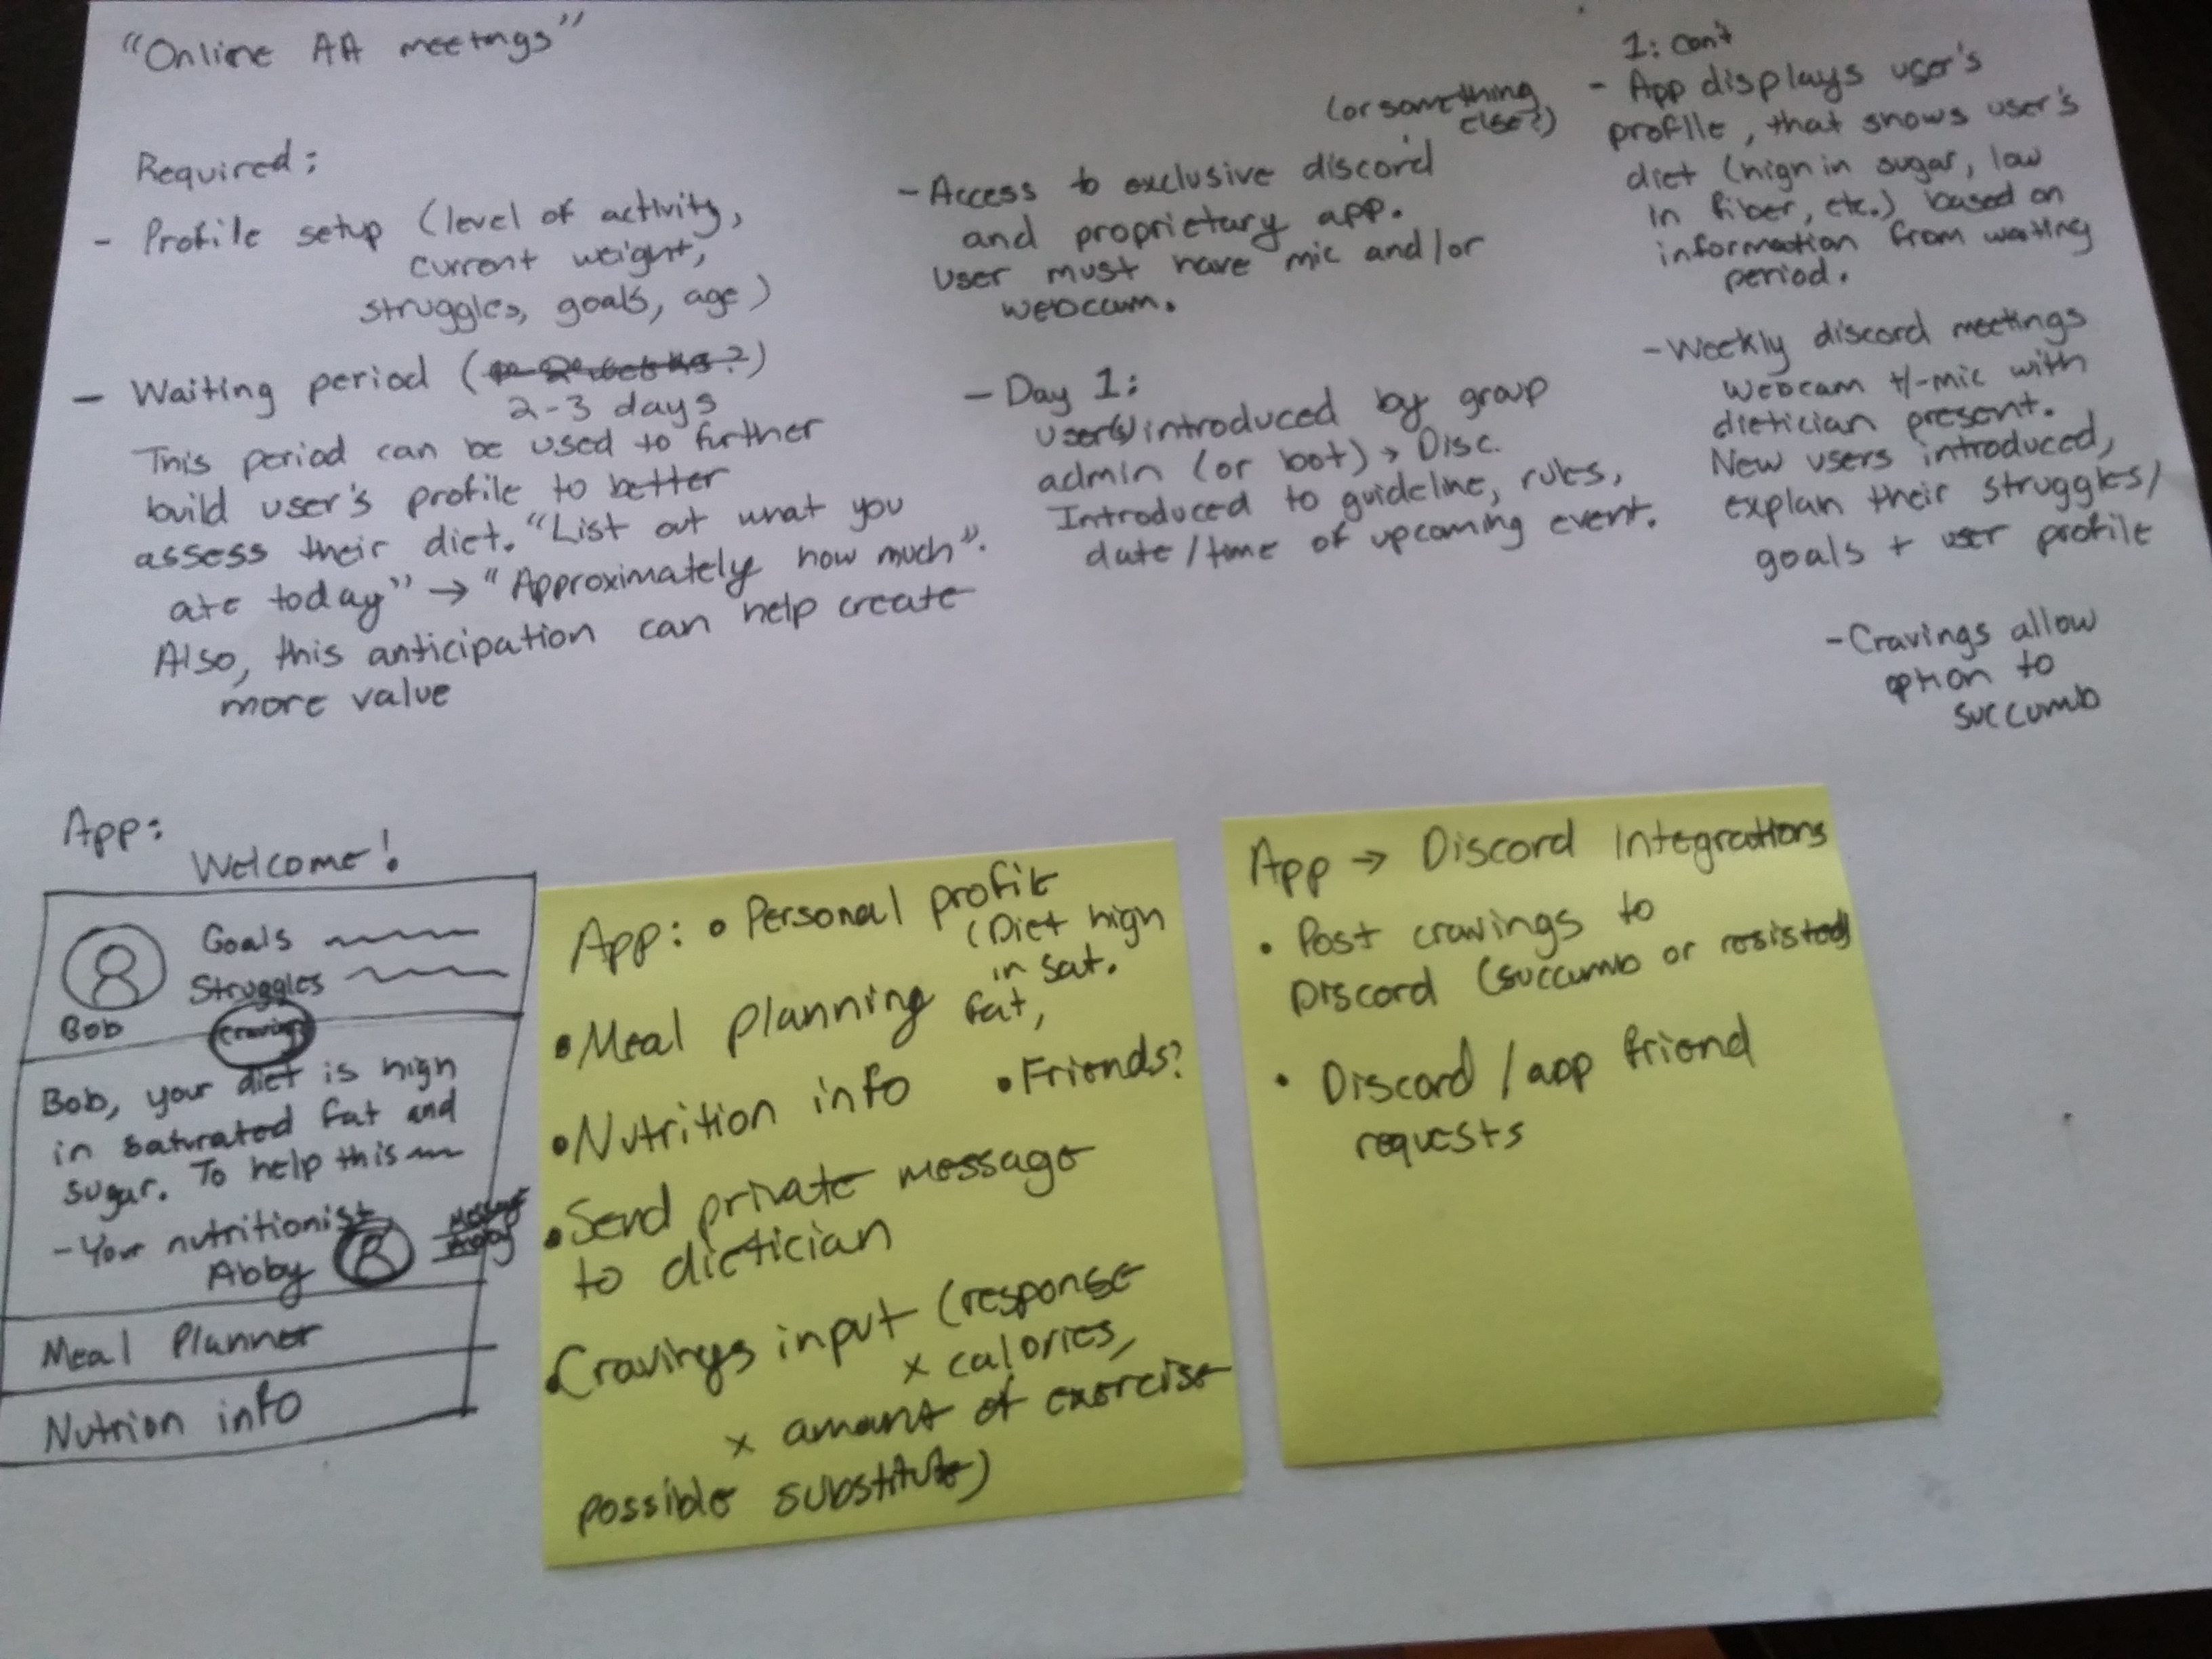 "Online AA meetings"
Required:
- Profile setup (level of activity,
current weight,
struggles, goals, age)
- Waiting period (2 weeks?)
2-3 days
This period can be used to further
build user's profile to better
assess their diet. "List out what you
ate today" → "Approximately how much".
Also, this anticipation can help create
more value
(or something
else?)
- Access to exclusive discord
and proprietary app.
User must have mic and/or
webcam.
- Day 1:
User(s) introduced by group
admin (or bot) → Disc.
Introduced to guideline, rules,
date/time of upcoming event.
1: con't
- App displays user's
profile, that shows user's
diet (high in sugar, low
in fiber, etc.) based on
information from waiting
period.
- Weekly discord meetings
webcam +/- mic with
dietician present.
New users introduced,
explan their struggles/
goals + user profile
- Cravings allow
option to
succumb
App:
Welcome!
Goals
Struggles
Bob
Cravings
Bob, your diet is high
in saturated fat and
sugar. To help this
- Your nutritionist
Abby
Message
Abby
Meal Planner
Nutrion info
App: • Personal profile
(Diet high
in sat.
fat,
• Meal planning
• Nutrition info • Friends?
• Send private message
to dietician
• Cravings input (response
x calories,
x amount of exercise
possible substitute)
App → Discord Integrations
• Post cravings to
Discord (succumb or resisted)
• Discord / app friend
requests